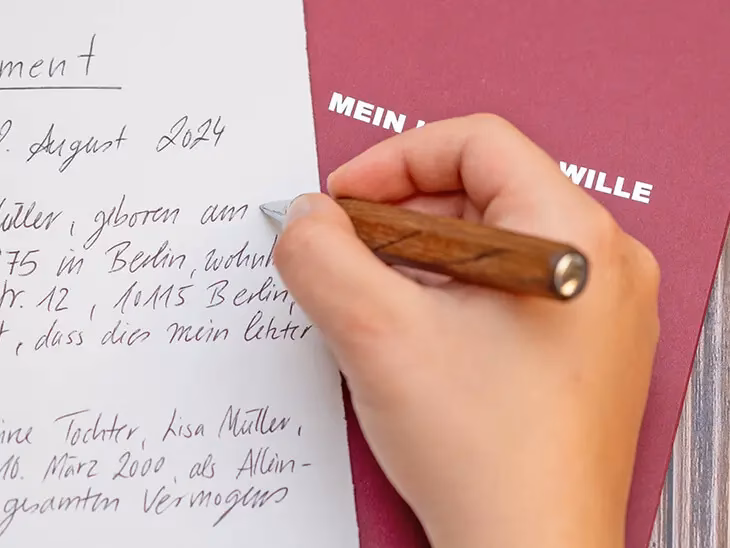 ment
. August 2024
üller, geboren am
75 in Berlin, wohnh
tr. 12, 10115 Berlin,
t, dass dies mein letzter
ine Tochter, Lisa Müller,
10. März 2000, als Allein-
gesamten Vermögens
MEIN
WILLE